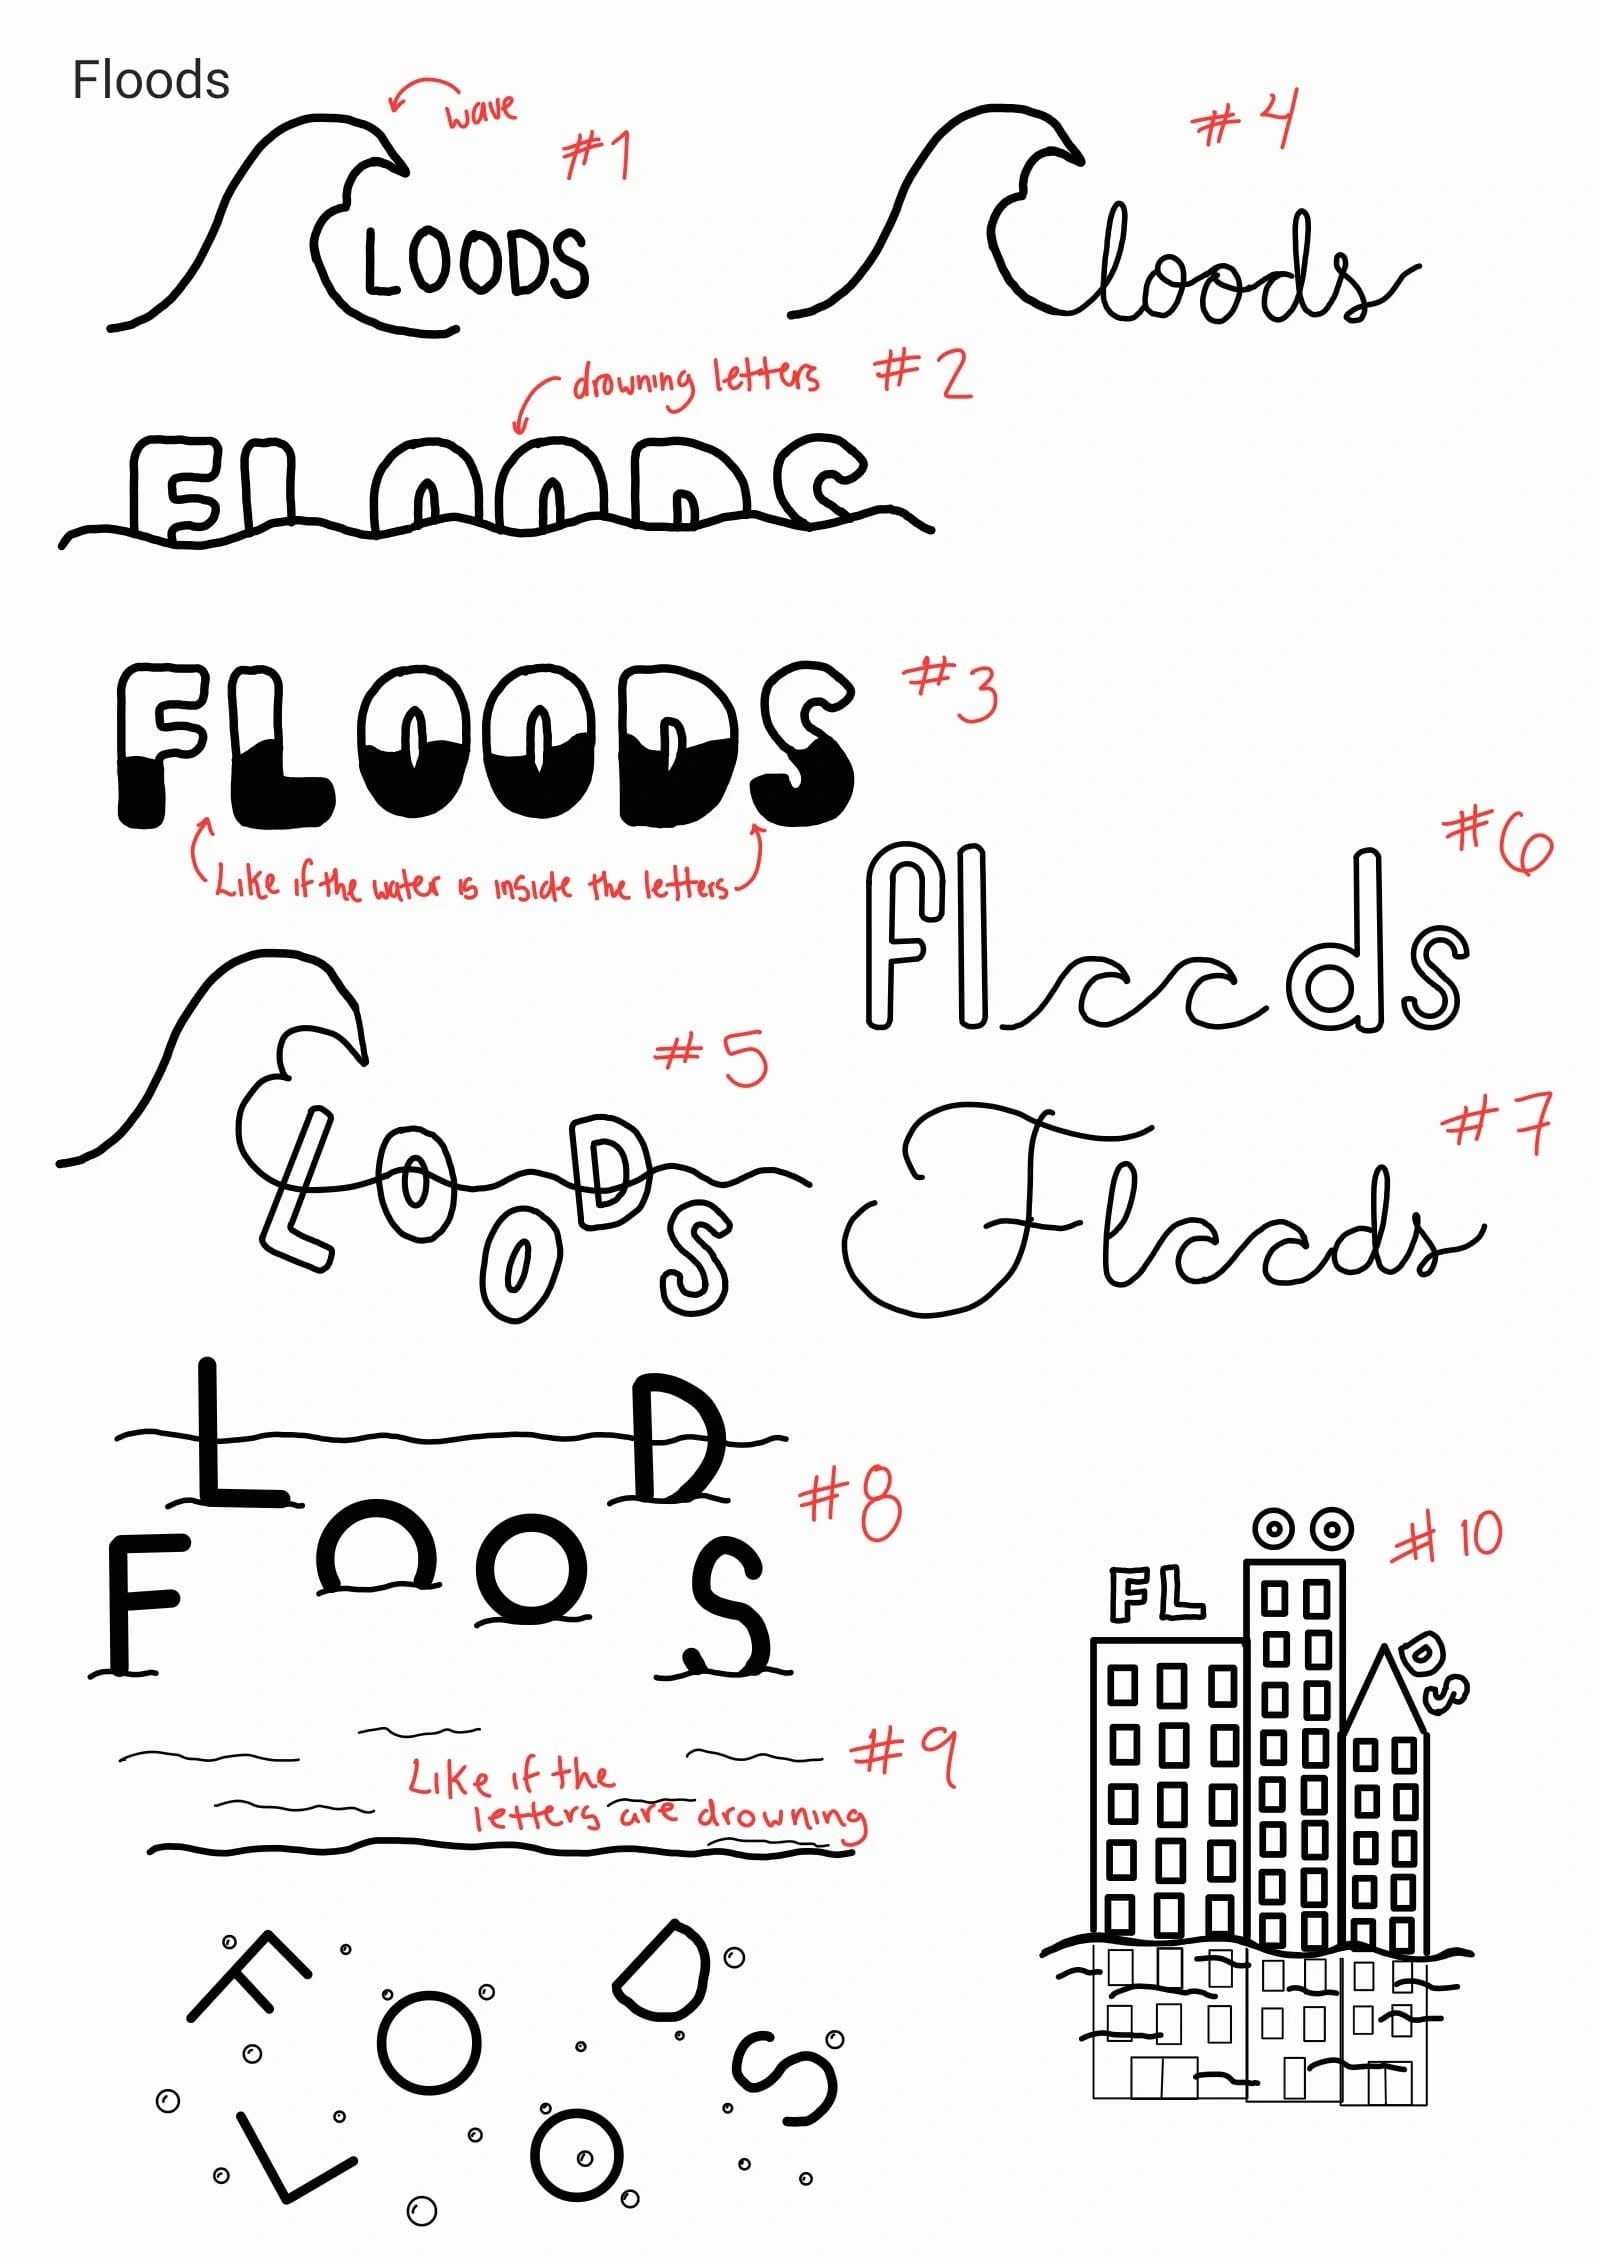 Floods
wave
#1
LOODS
#4
loods
drowning letters #2
FLOODS
#3
FLOODS
Like if the water is inside the letters
#6
fl ds
#5
LOODS
#7
Fl ds
L D
#8
F O O S
#9
Like if the
letters are drowning
F D
O S
L O
#10
FL
OO
DS